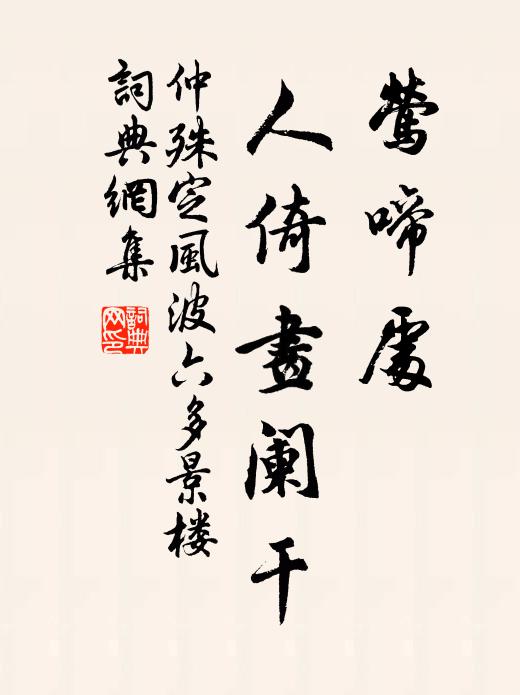 鶯啼處
人倚畫阑干
仲殊定風波六多景楼
詞典網集
詞典网印